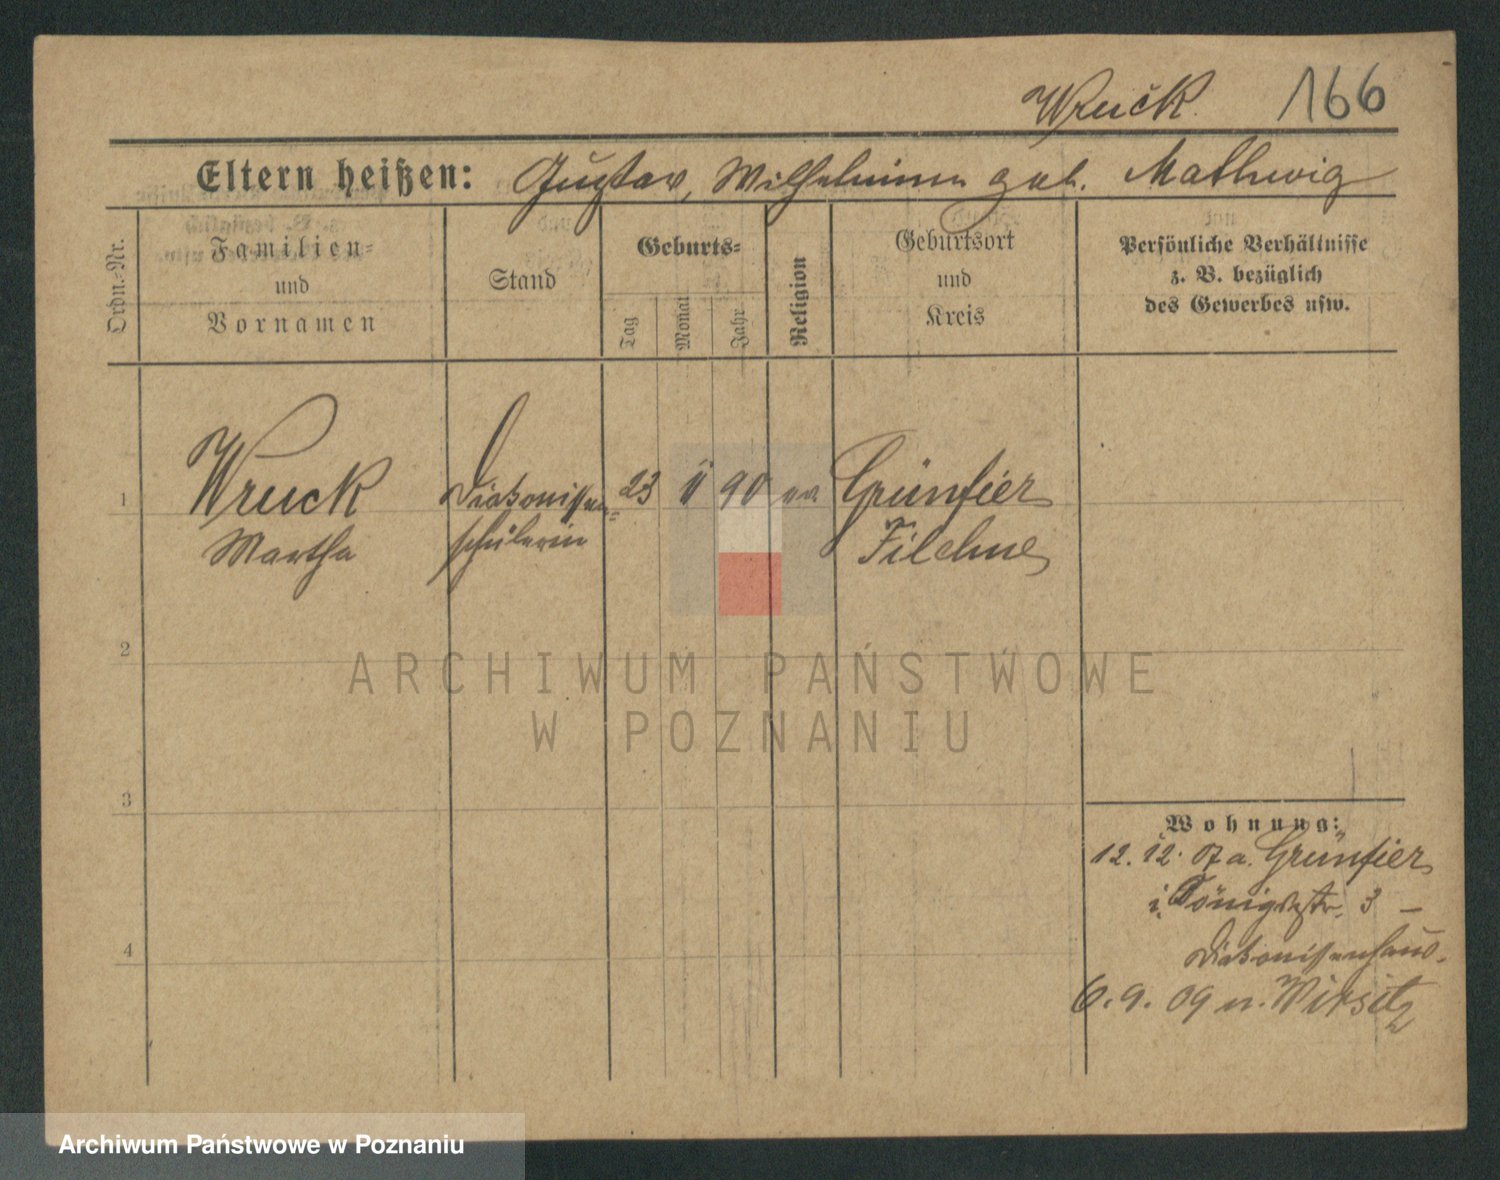 Wruck. 166
Eltern heißen: Gustav, Wilhelmine geb. Mathwig
Ordn.-Nr.
Familien-
und
Vornamen
Stand
Geburts-
Tag
Monat
Jahr
Religion
Geburtsort
und
Kreis
Persönliche Verhältnisse
z. B. bezüglich
des Gewerbes usw.
1 Wruck Diakonissen- 23 II 90 ev. Grünfier
Martha schülerin Filehne
2
ARCHIWUM PAŃSTWOWE
W POZNANIU
3
4
Wohnung:
12. 12. 07 a. Grünfier
i. Königstr. 3 –
Diakonissenhaus.
6. 9. 09 n. Wirsitz
Archiwum Państwowe w Poznaniu